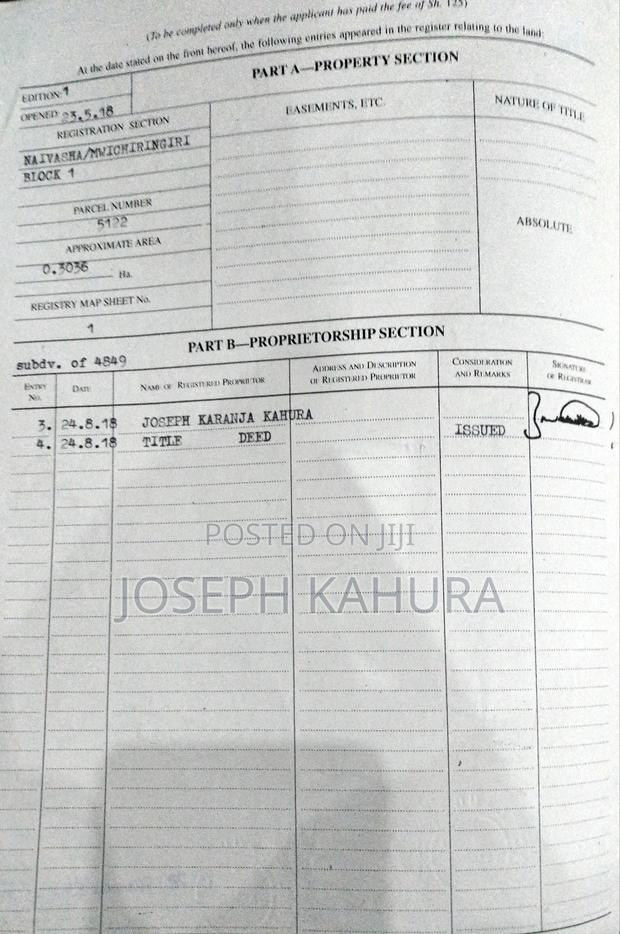 (To be completed only when the applicant has paid the fee of Sh. 125)
At the date stated on the front hereof, the following entries appeared in the register relating to the land:
PART A—PROPERTY SECTION
EDITION: 1
OPENED: 23.5.18
REGISTRATION SECTION
NAIVASHA/MWICHIRINGIRI
BLOCK 1
PARCEL NUMBER
5122
APPROXIMATE AREA
0.3036 Ha.
REGISTRY MAP SHEET No.
1
EASEMENTS, ETC.
NATURE OF TITLE
ABSOLUTE
PART B—PROPRIETORSHIP SECTION
subdv. of 4849
ENTRY No.
DATE
NAME OF REGISTERED PROPRIETOR
ADDRESS AND DESCRIPTION OF REGISTERED PROPRIETOR
CONSIDERATION AND REMARKS
SIGNATURE OF REGISTRAR
3. 24.8.18 JOSEPH KARANJA KAHURA
4. 24.8.18 TITLE DEED ISSUED
POSTED ON JIJI
JOSEPH KAHURA